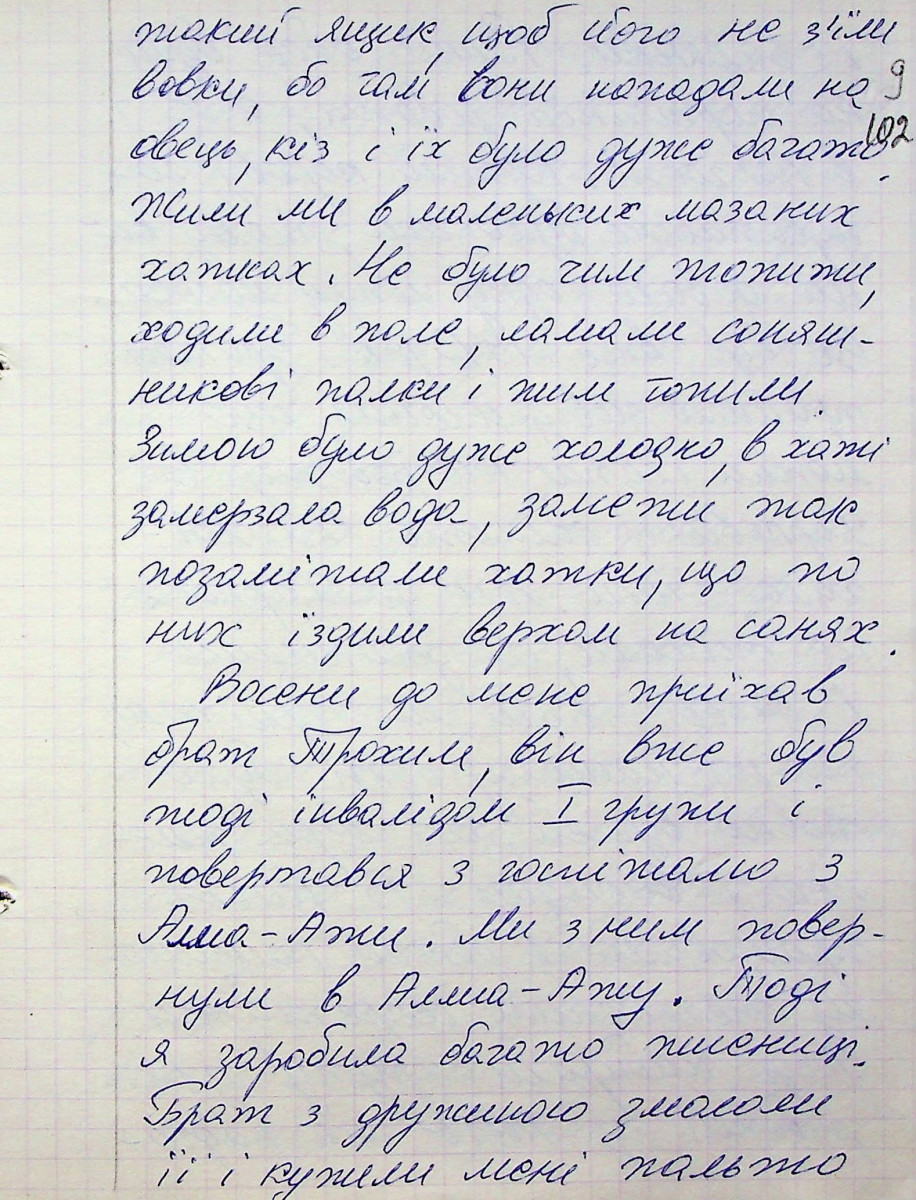 такий ящик, щоб його не з'їли
вовки, бо там вони нападали на 9
овець, кіз і їх було дуже багато. 102
Жили ми в маленьких мазаних
хатках. Не було чим топити,
ходили в поле, ламали соняш-
никові палки і тим топили.
Зимою було дуже холодно, в хаті
замерзала вода, замети так
позамітали хатки, що по
них їздили верхом на санях.
Восени до мене приїхав
брат Трохим, він вже був
тоді інвалідом I групи і
повертався з госпіталю з
Алма-Ати. Ми з ним повер-
нули в Алма-Ату. Тоді
я заробила багато пшениці.
Брат з дружиною змололи
її і купили мені пальто